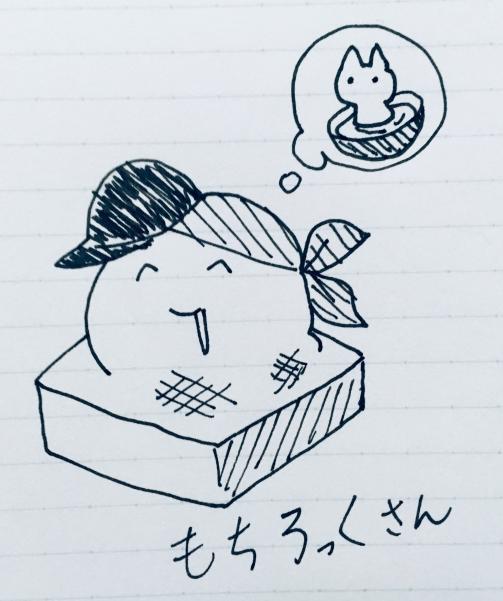 もちろっくさん